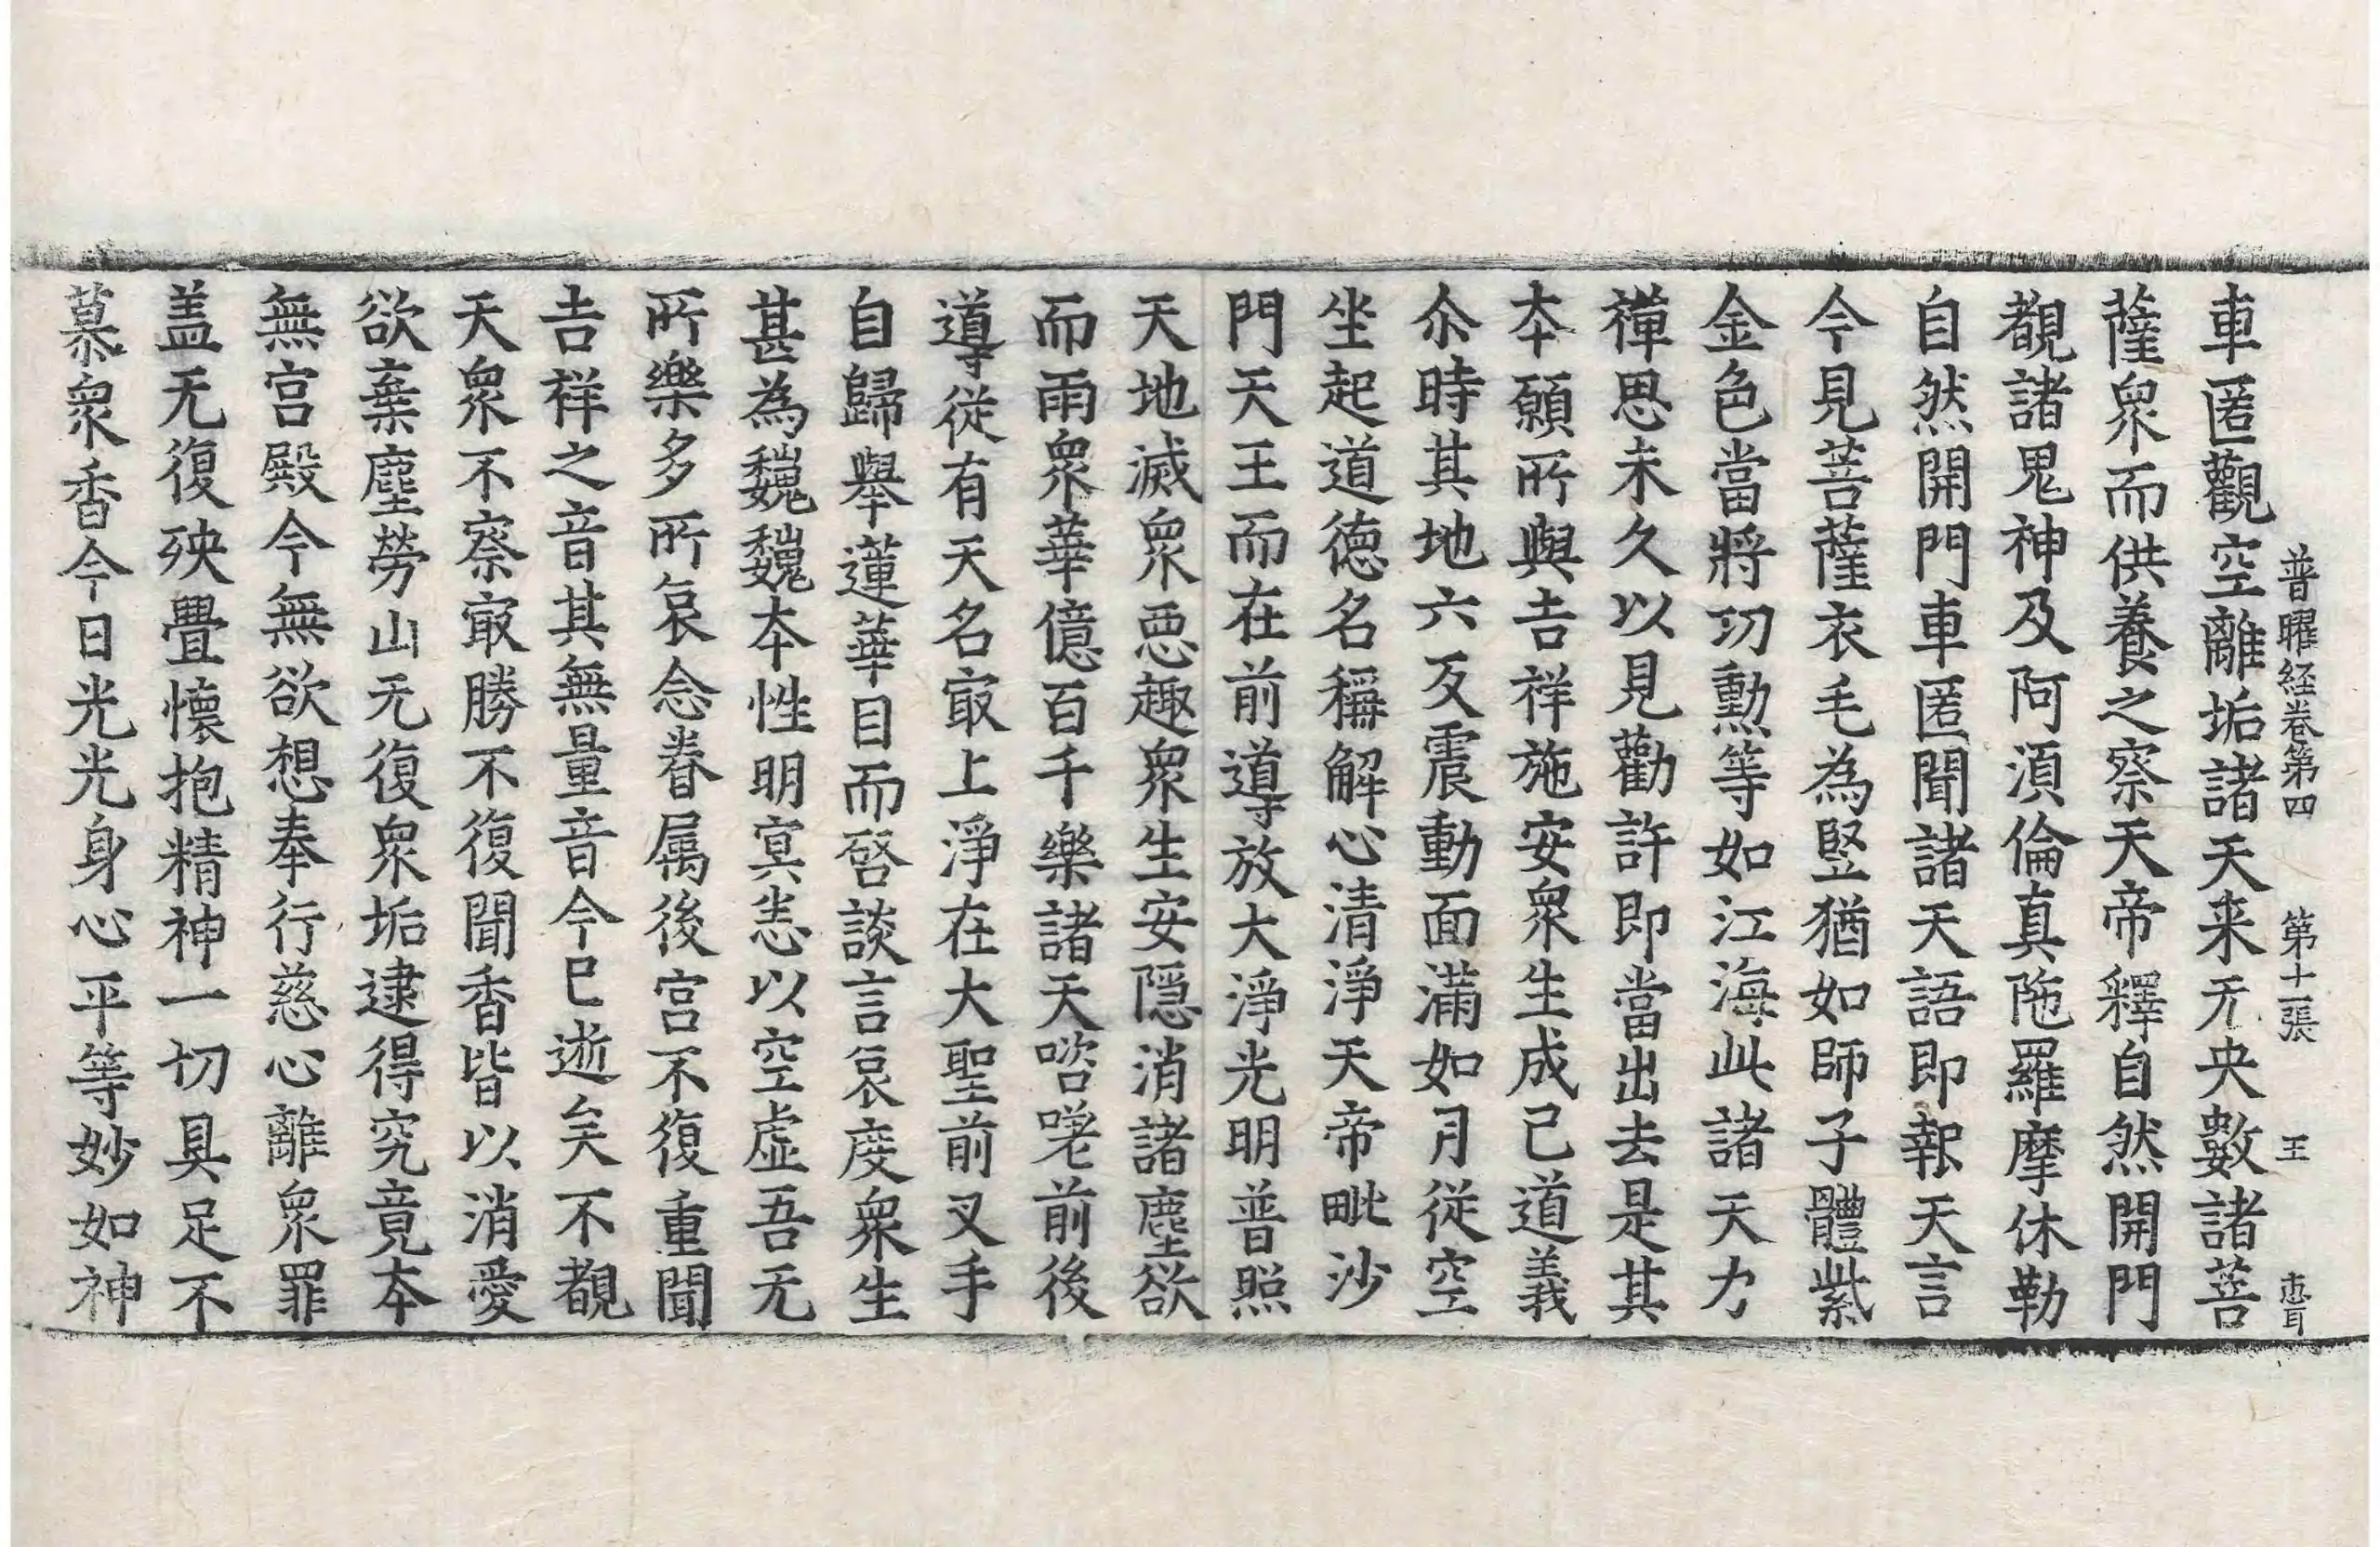 普曜経卷第四 第十一張 王
車匿觀空離垢諸天来无央數諸菩
薩衆而供養之察天帝釋自然開門
覩諸鬼神及阿湏倫真陁羅摩休勒
自然開門車匿聞諸天語即報天言
今見菩薩衣毛為竪猶如師子體紫
金色當將功勲等如江海此諸天力
禪思未久以見勸許即當出去是其
本願所與吉祥施安衆生成己道義
尒時其地六反震動面滿如月從空
坐起道德名稱解心清淨天帝毗沙
門天王而在前導放大淨光明普照
天地滅衆惡趣衆生安隠消諸塵欲
而雨衆華億百千樂諸天咨嗟前後
導從有天名冣上淨在大聖前叉手
自歸舉蓮華目而啓談言哀度衆生
甚為巍巍本性明冥恙以空虛吾无
所樂多所哀念眷属後宮不復重聞
吉祥之音其無量音今已逝矣不覩
天衆不察冣勝不復聞香皆以消愛
欲棄塵勞山无復衆垢逮得究竟本
無宮殿今無欲想奉行慈心離衆罪
盖无復殃疊懷抱精神一切具足不
慕衆香今日光光身心平等妙如神